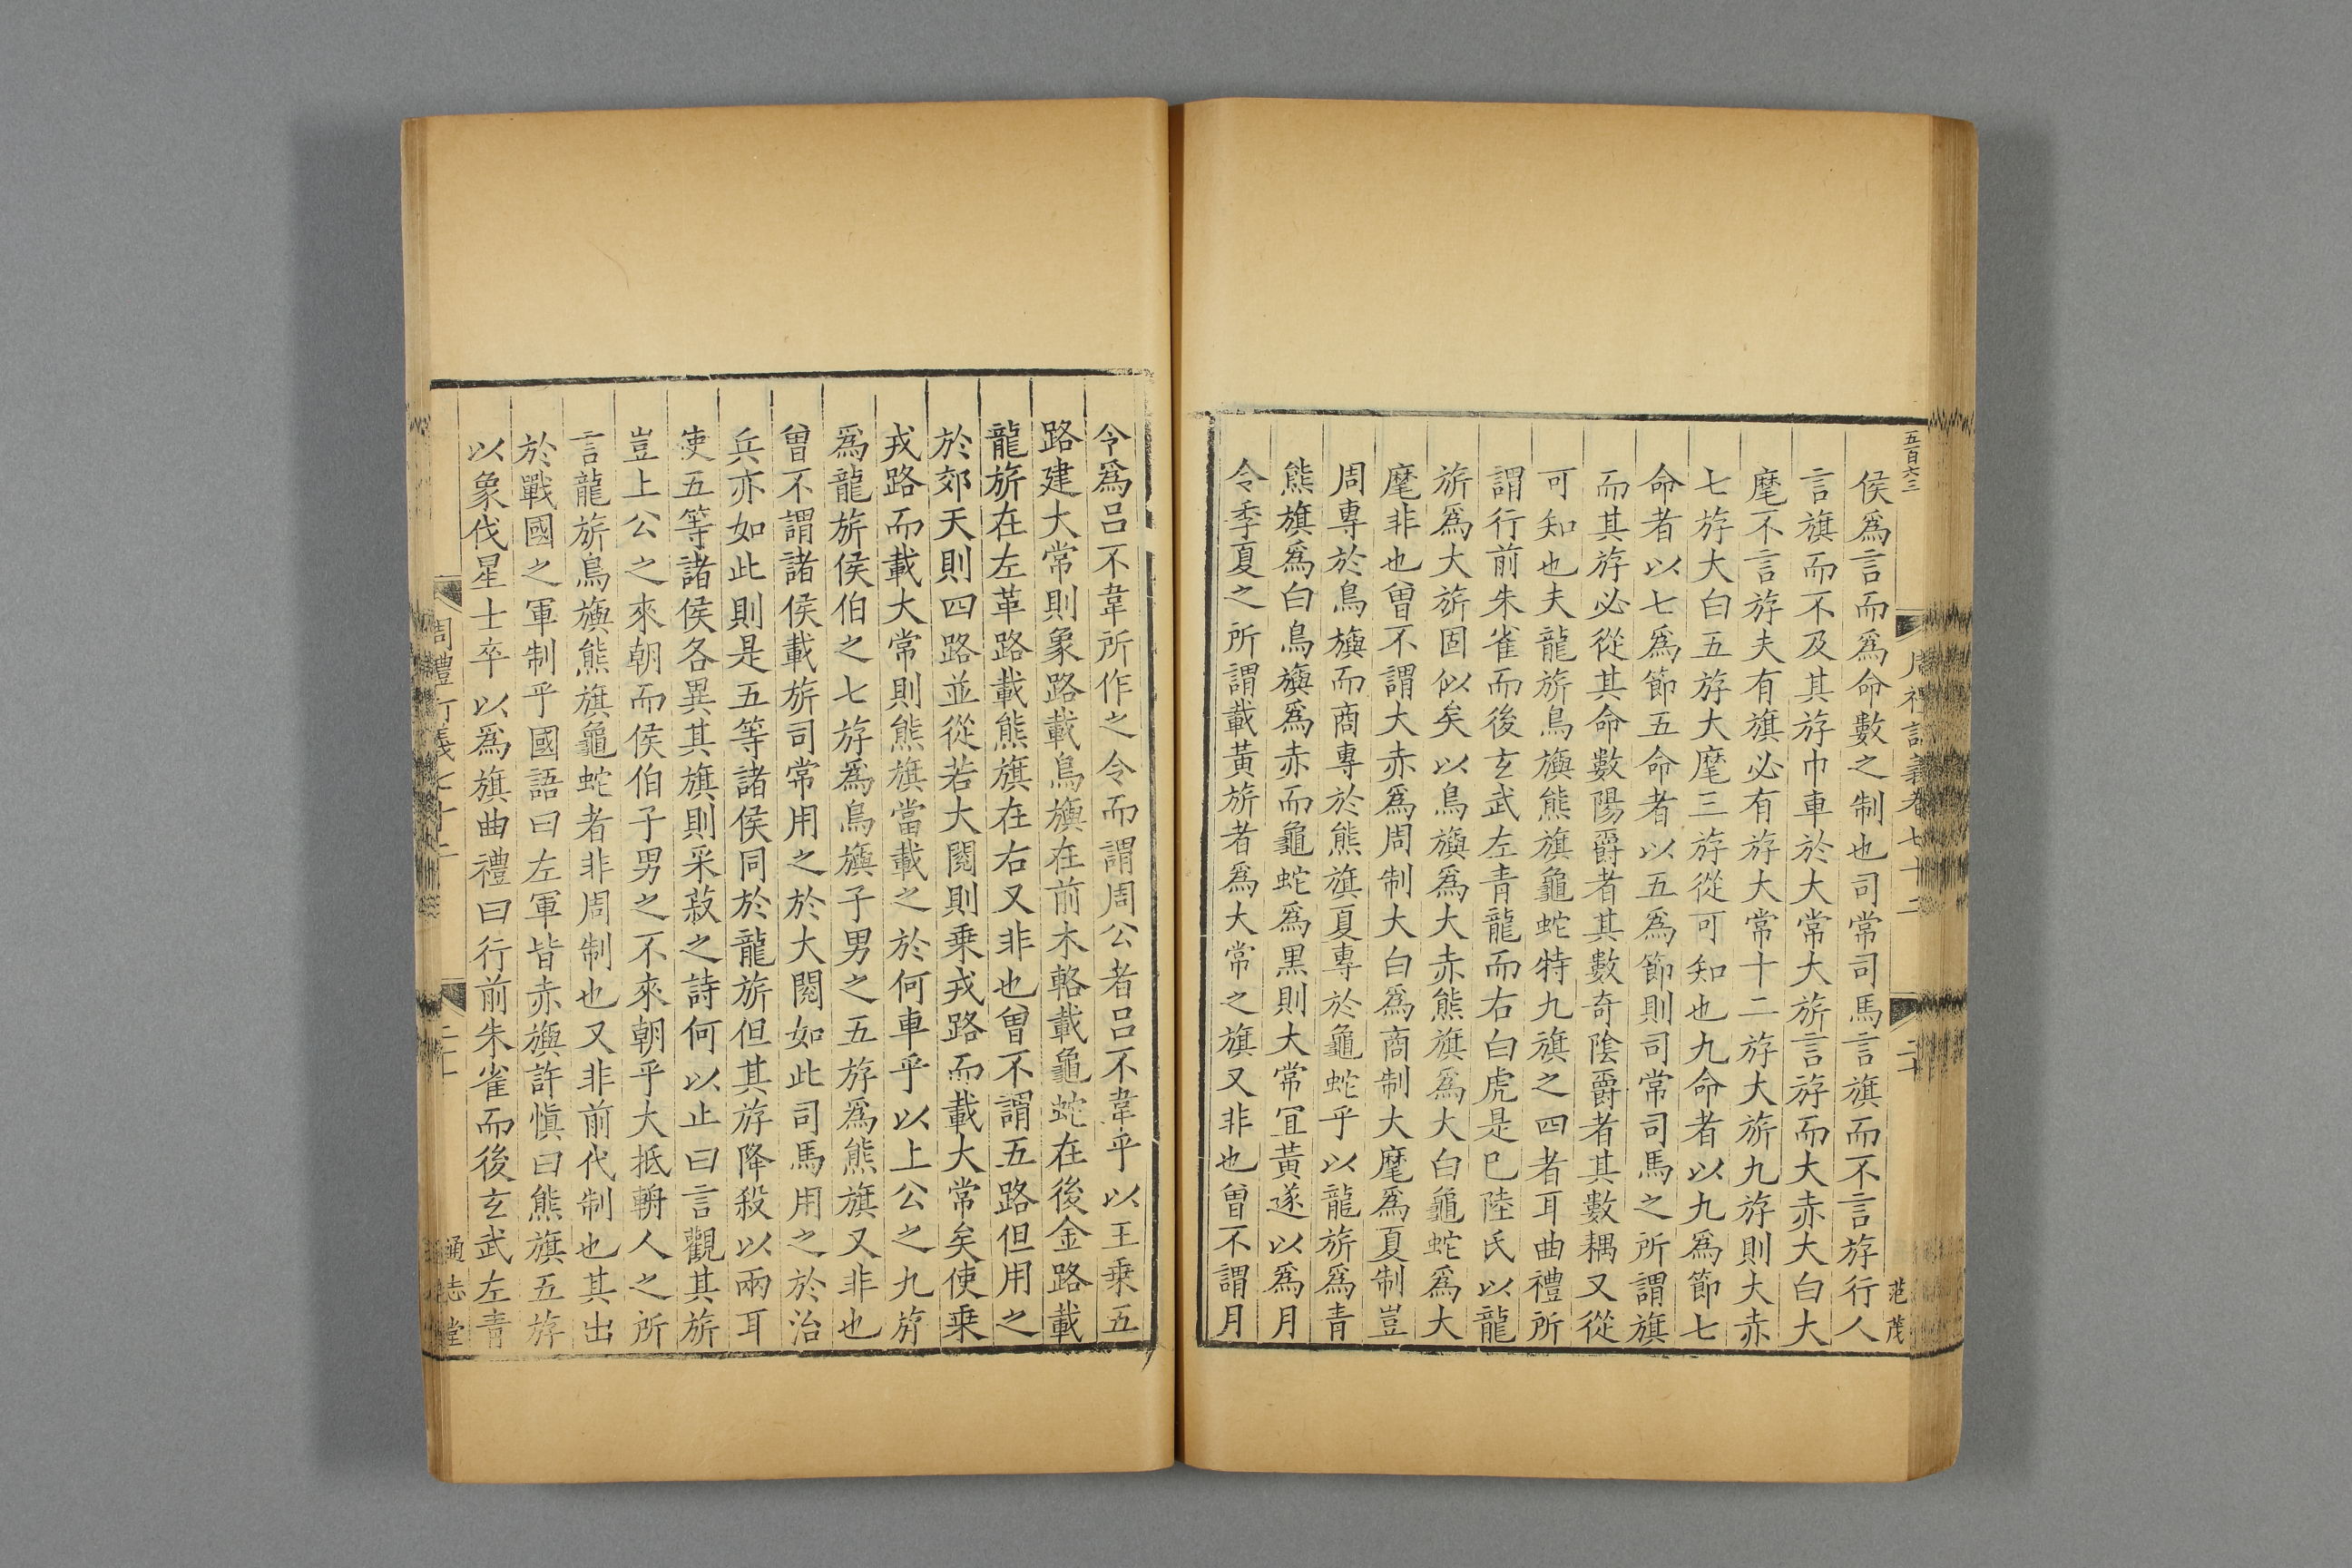 五百六三
侯爲言而爲命數之制也司常司馬言旗而不言斿行人
言旗而不及其斿巾車於大常大旂言斿而大赤大白大
麾不言斿夫有旗必有斿大常十二斿大旂九斿則大赤
七斿大白五斿大麾三斿從可知也九命者以九爲節七
命者以七爲節五命者以五爲節則司常司馬之所謂旗
而其斿必從其命數陽爵者其數奇陰爵者其數耦又從
可知也夫龍旂鳥旟熊旗龜蛇特九旗之四者耳曲禮所
謂行前朱雀而後玄武左青龍而右白虎是巳陸氏以龍
旂爲大旂固似矣以鳥旟爲大赤熊旗爲大白龜蛇爲大
麾非也曽不謂大赤爲周制大白爲商制大麾爲夏制豈
周專於鳥旟而商專於熊旗夏專於龜蛇乎以龍旂爲青
熊旗爲白鳥旟爲赤而龜蛇爲黒則大常宜黃遂以爲月
令季夏之所謂載黃旂者爲大常之旗又非也曽不謂月
周禮訂義卷七十二
二十
范茂
令爲呂不韋所作之令而謂周公者呂不韋乎以王乗五
路建大常則象路載鳥旟在前木輅載龜蛇在後金路載
龍旂在左革路載熊旗在右又非也曽不謂五路但用之
於郊天則四路並從若大閱則乗戎路而載大常矣使乗
戎路而載大常則熊旗當載之於何車乎以上公之九斿
爲龍旂侯伯之七斿爲鳥旟子男之五斿爲熊旗又非也
曽不謂諸侯載旂司常用之於大閱如此司馬用之於治
兵亦如此則是五等諸侯同於龍旂但其斿降殺以兩耳
使五等諸侯各異其旗則采菽之詩何以止曰言觀其旂
豈上公之來朝而侯伯子男之不來朝乎大抵輈人之所
言龍旂鳥旟熊旗龜蛇者非周制也又非前代制也其出
於戰國之軍制乎國語曰左軍皆赤旟許愼曰熊旗五斿
以象伐星士卒以爲旗曲禮曰行前朱雀而後玄武左青
周禮訂義七十二
通志堂